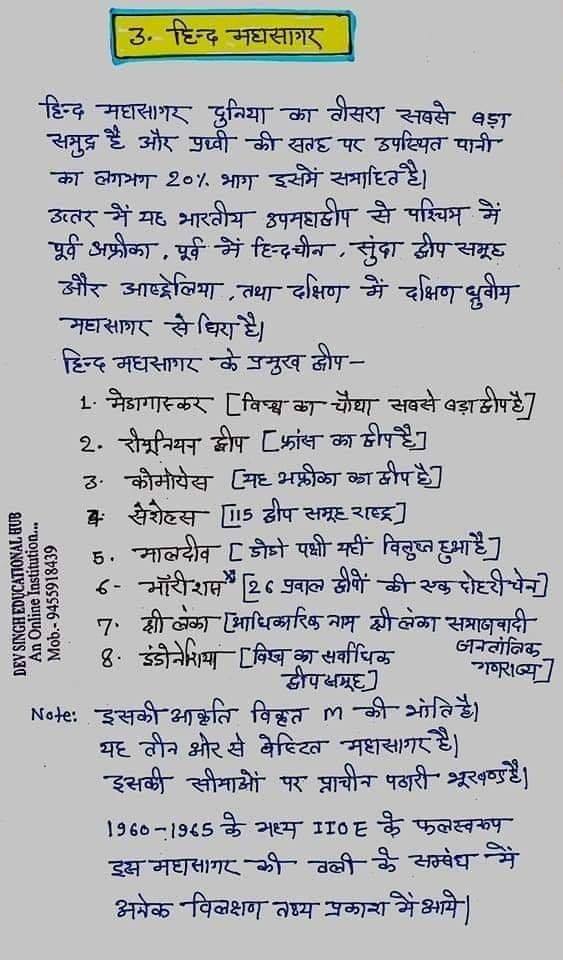 3. हिन्द महासागर
हिन्द महासागर दुनिया का तीसरा सबसे बड़ा
समुद्र है और पृथ्वी की सतह पर उपस्थित पानी
का लगभग 20% भाग इसमें समाहित है।
उत्तर में यह भारतीय उपमहाद्वीप से पश्चिम में
पूर्व अफ्रीका, पूर्व में हिन्दचीन, सुंदा द्वीप समूह
और आष्ट्रेलिया, तथा दक्षिण में दक्षिण ध्रुवीय
महासागर से घिरा है।
हिन्द महासागर के प्रमुख द्वीप -
1. मेडागास्कर [विश्व का चौथा सबसे बड़ा द्वीप है]
2. रीयूनियन द्वीप [फ्रांस का द्वीप है]
3. कोमोरोस [यह अफ्रीका का द्वीप है]
4. सेशेल्स [115 द्वीप समूह राष्ट्र]
5. मालदीव [डोडो पक्षी यहीं विलुप्त हुआ है]
6- मॉरीशस [26 प्रवाल द्वीपों की एक दोहरी चेन]
7. श्री लंका [आधिकारिक नाम श्री लंका समाजवादी
जनतांत्रिक
गणराज्य]
8. इंडोनेशिया [विश्व का सर्वाधिक
द्वीप समूह]
Note: इसकी आकृति विकृत M की भांति है।
यह तीन ओर से वेष्टित महासागर है।
इसकी सीमाओं पर प्राचीन पठारी भूखण्ड है।
1960-1965 के मध्य IIOE के फलस्वरूप
इस महासागर की तली के सम्बंध में
अनेक विलक्षण तथ्य प्रकाश में आये।
DEV SINGH EDUCATIONAL HUB
An Online Institution...
Mob.- 9455918439